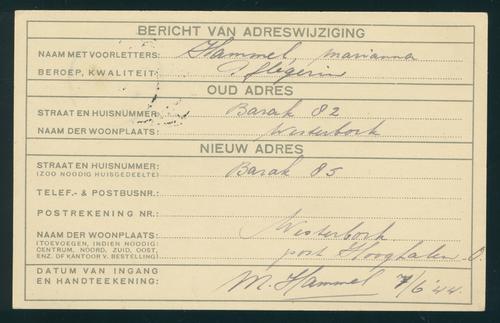 BERICHT VAN ADRESWIJZIGING
NAAM MET VOORLETTERS: Hammel, marianna
BEROEP, KWALITEIT: Pflegerin
OUD ADRES
STRAAT EN HUISNUMMER: Barak 82
NAAM DER WOONPLAATS: Westerbork
NIEUW ADRES
STRAAT EN HUISNUMMER: Barak 85
(ZOO NOODIG HUISGEDEELTE)
TELEF.- & POSTBUSNR.:
POSTREKENING NR.:
NAAM DER WOONPLAATS: Westerbork
(TOEVOEGEN, INDIEN NOODIG: post Hooghalen O.
CENTRUM, NOORD, ZUID, OOST,
ENZ. OF KANTOOR V. BESTELLING)
DATUM VAN INGANG
EN HANDTEEKENING: M. Hammel 7/6 '44.